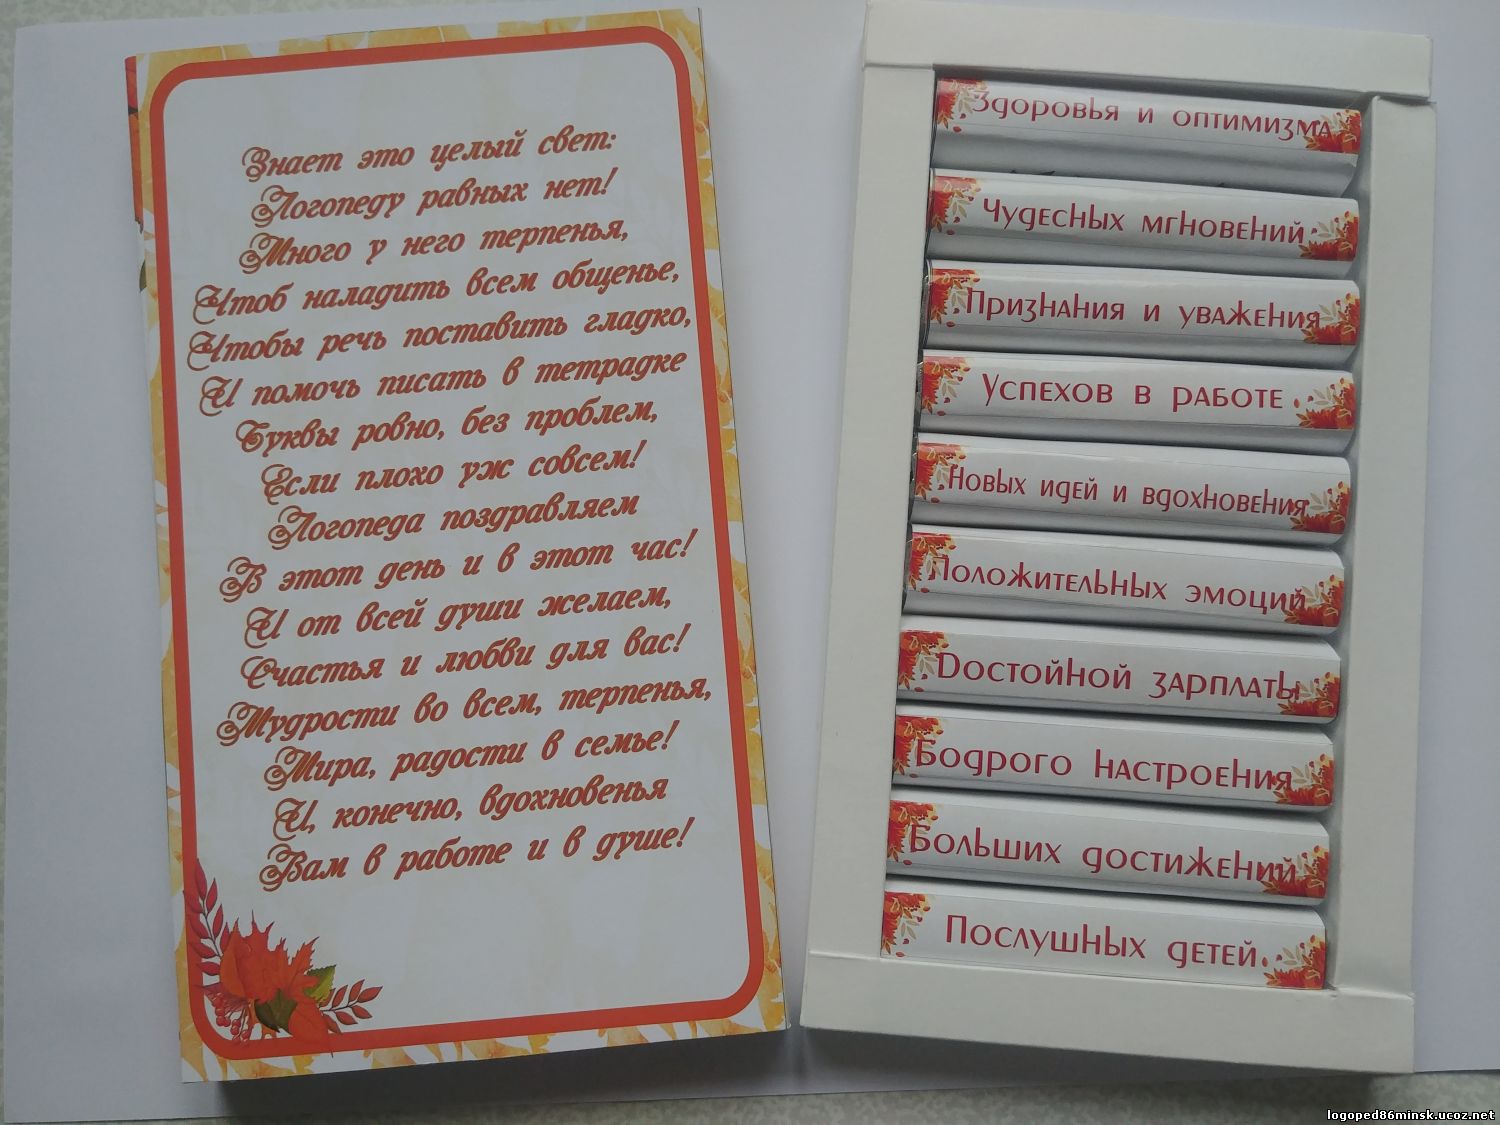 Знает это целый свет:
Логопеду равных нет!
Много у него терпенья,
Чтоб наладить всем общенье,
Чтобы речь поставить гладко,
И помочь писать в тетрадке
Буквы ровно, без проблем,
Если плохо уж совсем!
Логопеда поздравляем
В этот день и в этот час!
И от всей души желаем,
Счастья и любви для вас!
Мудрости во всем, терпенья,
Мира, радости в семье!
И, конечно, вдохновенья
Вам в работе и в душе!
Здоровья и оптимизма
Чудесных мгновений
Признания и уважения
Успехов в работе
Новых идей и вдохновения
Положительных эмоций
Достойной зарплаты
Бодрого настроения
Больших достижений
Послушных детей
logoped86minsk.ucoz.net